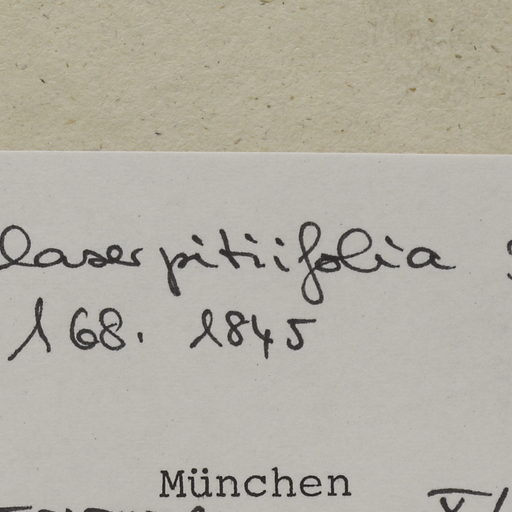 laserpitiifolia
168. 1845
München